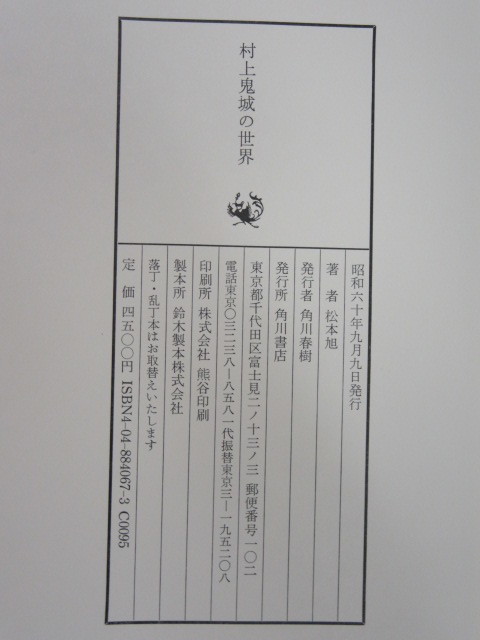 村上鬼城の世界
昭和六十年九月九日発行
著　者 松本旭
発行者 角川春樹
発行所 角川書店
東京都千代田区富士見二ノ十三ノ三 郵便番号一〇二
電話東京〇三二三八―八五八一代振替東京三―一九五二〇八
印刷所 株式会社 熊谷印刷
製本所 鈴木製本株式会社
落丁・乱丁本はお取替えいたします
定　価 四五〇〇円 ISBN4-04-884067-3 C0095